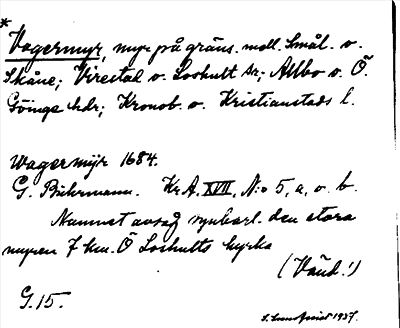 * Vagermyr, myr på gräns. mell. Smål. o.
Skåne; Virestad o. Loshult sr; Allbo o. Ö.
Göinge hdr; Kronob. o. Kristianstads l.
Wagermÿr 1684.
G. Buhrmann. Kr. A. XVII, N:o 5, a, o. b.
Namnet avsåg synbarl. den stora
myren 7 km. Ö Loshults kyrka
(Vänd!)
G. 15.
1937.